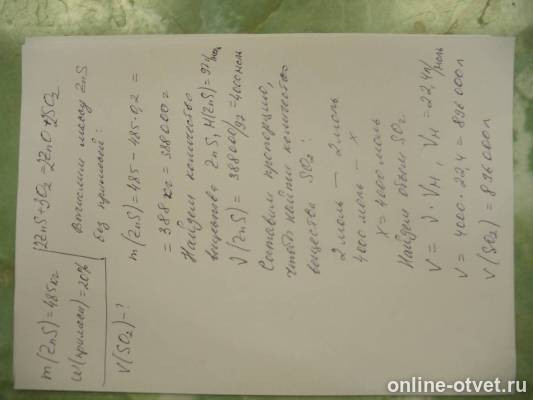 m(ZnS)=485кг
W(примеси)=20%
V(SO₂)-?
2ZnS+3O₂=2ZnO+2SO₂
Вычислим массу ZnS
без примесей:
m(ZnS)=485-485·0,2=
=388кг=388000г
Найдем количество
вещества ZnS, M(ZnS)=97г/моль
ν(ZnS)=388000/97=4000моль
Составим пропорцию,
чтобы найти количество
вещества SO₂:
2моль — 2моль
4000моль — x
x=4000моль
Найдем объем SO₂
V=ν·Vн, Vн=22,4л/моль
V=4000·22,4=89600л
V(SO₂)=89600л
online-otvet.ru